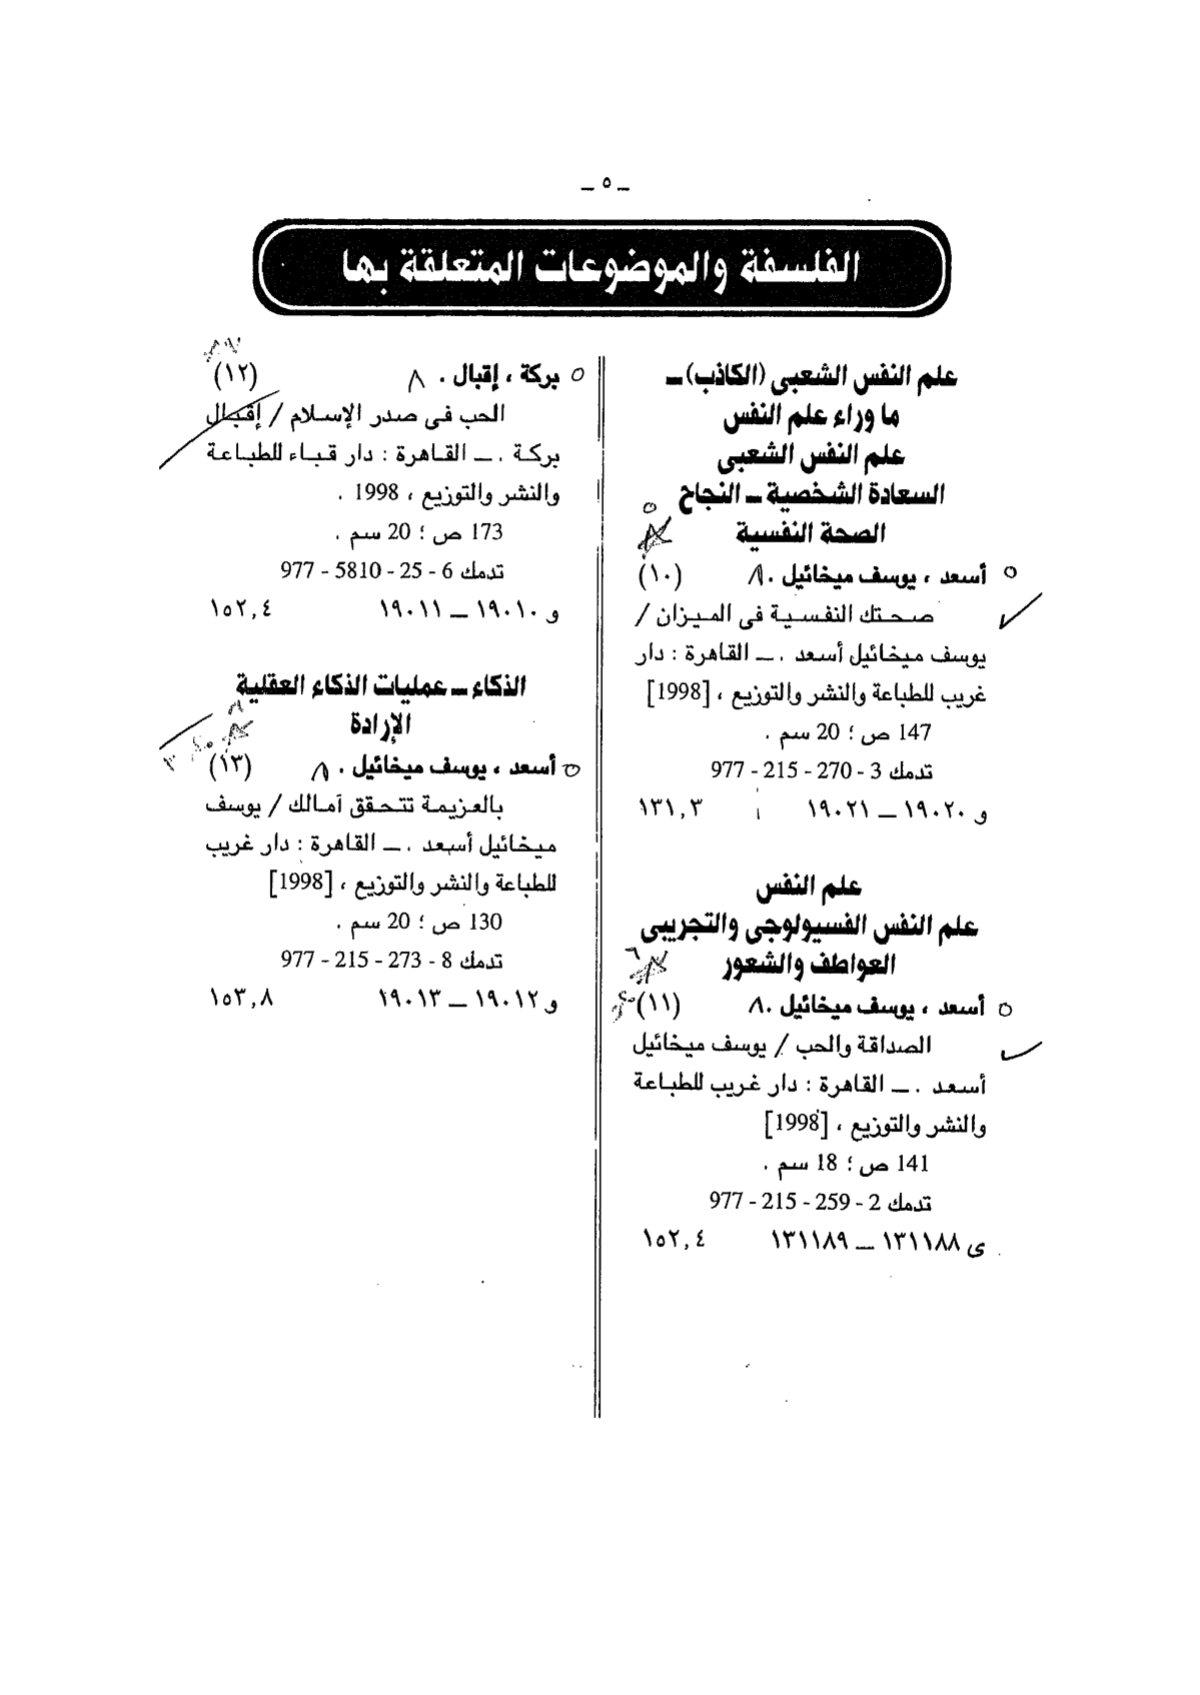 ـ ٥ ـ
الفلسفة والموضوعات المتعلقة بها
علم النفس الشعبى (الكاذب) ـ
ما وراء علم النفس
علم النفس الشعبى
السعادة الشخصية ـ النجاح
الصحة النفسية
أسعد ، يوسف ميخائيل . ٨ (١٠)
صحتك النفسية فى الميزان /
يوسف ميخائيل أسعد . ـ القاهرة : دار
غريب للطباعة والنشر والتوزيع ، [1998]
147 ص ؛ 20 سم .
تدمك 3 - 270 - 215 - 977
و ١٩٠٢٠ ـ ١٩٠٢١ أ ١٣١,٣
علم النفس
علم النفس الفسيولوجى والتجريبى
العواطف والشعور
أسعد ، يوسف ميخائيل . ٨ (١١)
الصداقة والحب / يوسف ميخائيل
أسعد . ـ القاهرة : دار غريب للطباعة
والنشر والتوزيع ، [1998]
141 ص ؛ 18 سم .
تدمك 2 - 259 - 215 - 977
ى ١٣١١٨٨ ـ ١٣١١٨٩ ١٥٢,٤
بركة ، إقبال . ٨ (١٢)
الحب فى صدر الإسلام / إقبال
بركة . ـ القاهرة : دار قباء للطباعة
والنشر والتوزيع ، 1998 .
173 ص ؛ 20 سم .
تدمك 6 - 25 - 5810 - 977
و ١٩٠١٠ ـ ١٩٠١١ ١٥٢,٤
الذكاء ـ عمليات الذكاء العقلية
الإرادة
أسعد ، يوسف ميخائيل . ٨ (١٣)
بالعزيمة تتحقق آمالك / يوسف
ميخائيل أسعد . ـ القاهرة : دار غريب
للطباعة والنشر والتوزيع ، [1998]
130 ص ؛ 20 سم .
تدمك 8 - 273 - 215 - 977
و ١٩٠١٢ ـ ١٩٠١٣ ١٥٣,٨